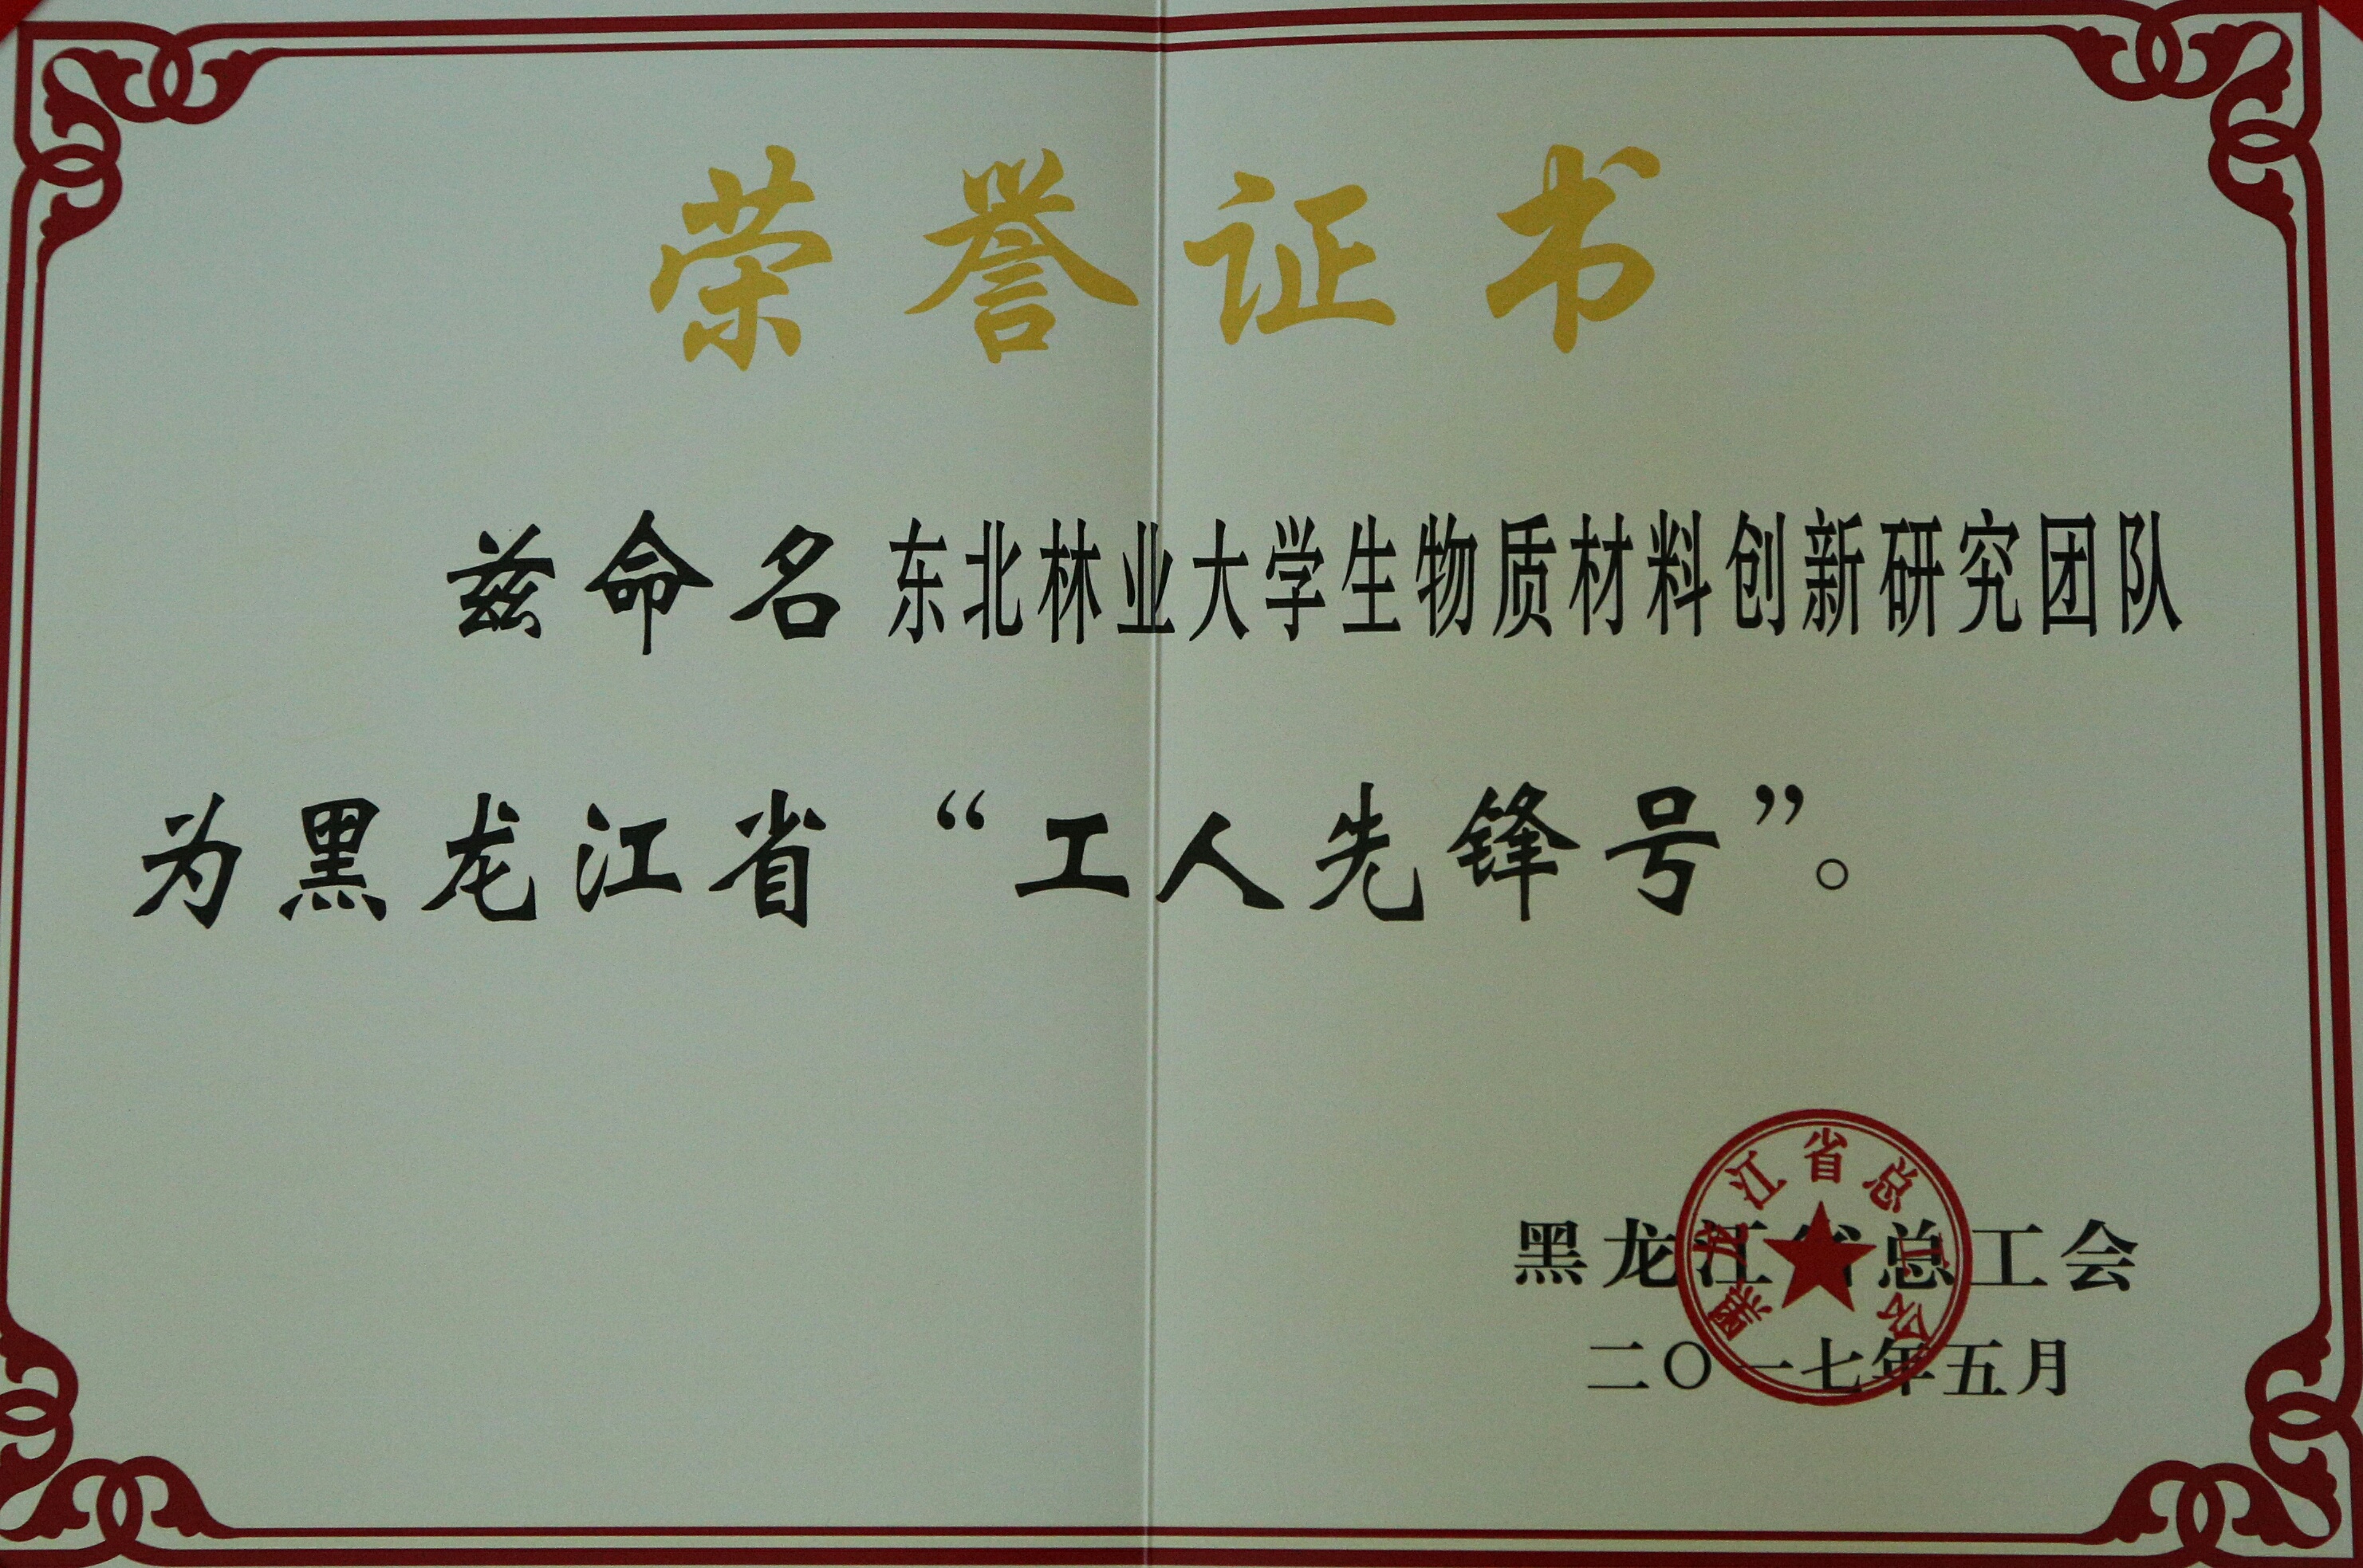 荣誉证书
兹命名东北林业大学生物质材料创新研究团队
为黑龙江省“工人先锋号”。
黑龙江省总工会
黑龙江省总工会
二〇一七年五月